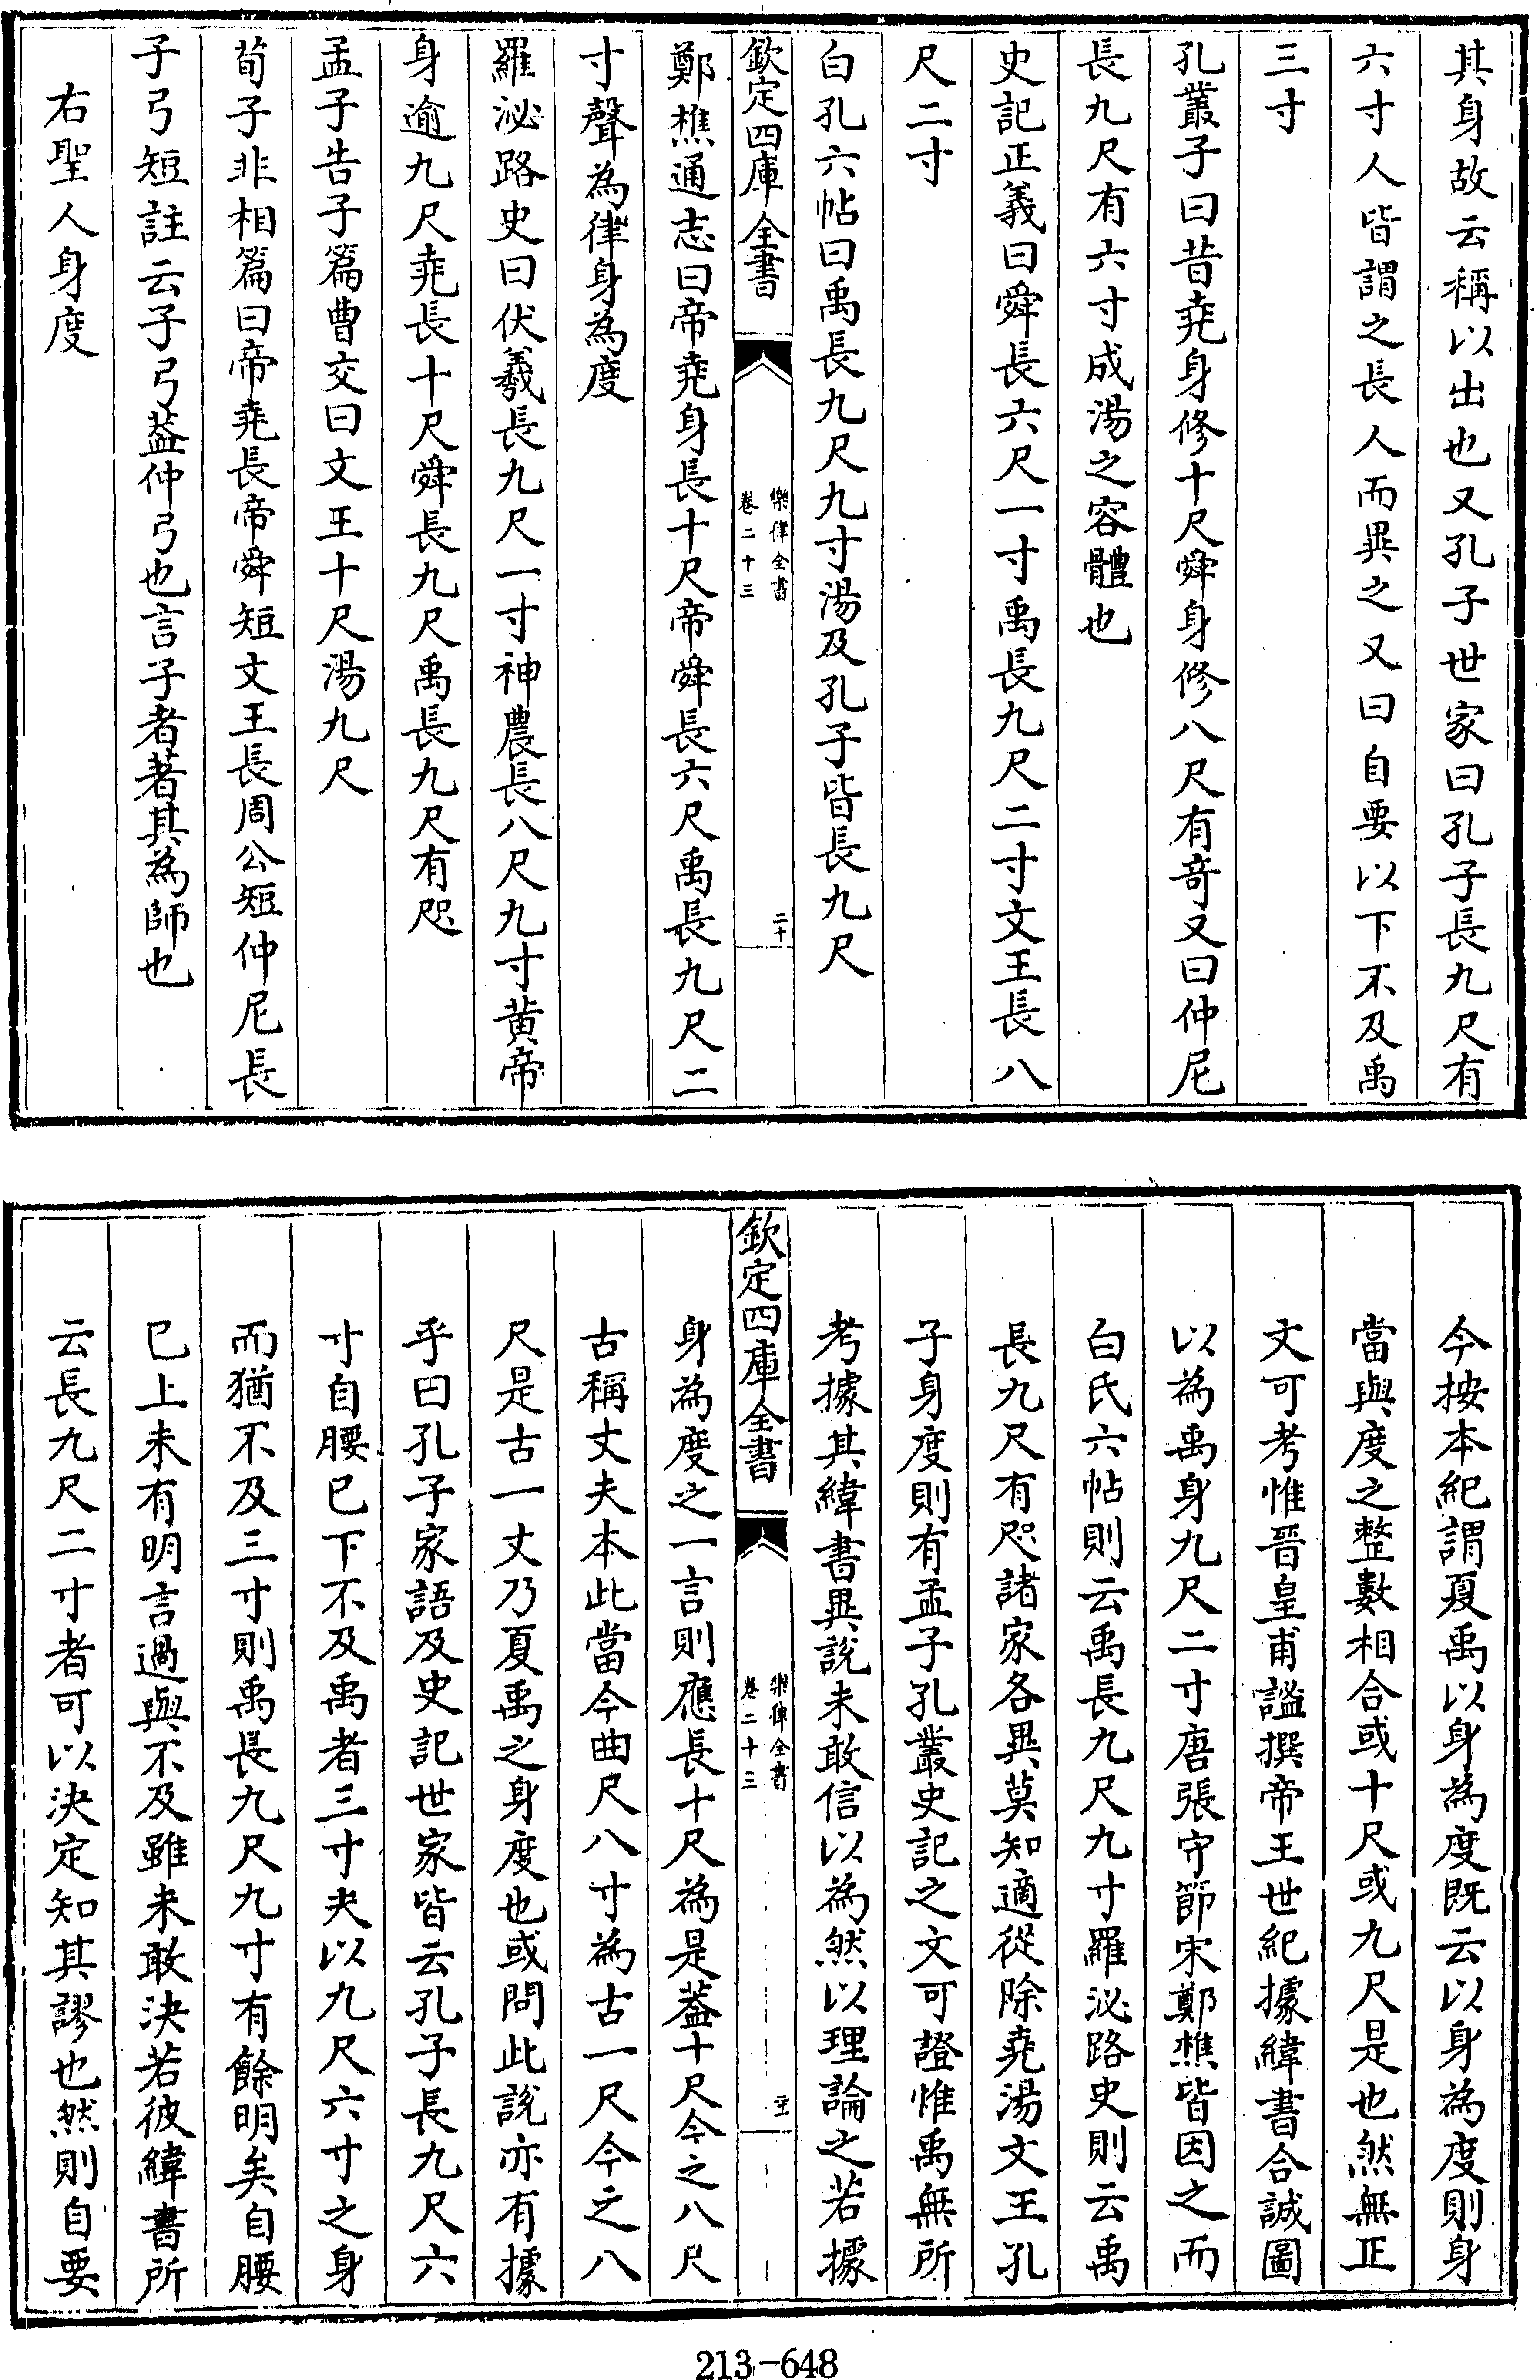 其身故云稱以出也又孔子世家曰孔子長九尺有
六寸人皆謂之長人而異之又曰自要以下不及禹
三寸
孔叢子曰昔堯身修十尺舜身修八尺有奇又曰仲尼
長九尺有六寸成湯之容體也
史記正義曰舜長六尺一寸禹長九尺二寸文王長八
尺二寸
白孔六帖曰禹長九尺九寸湯及孔子皆長九尺
欽定四庫全書
樂律全書
卷二十三
二十
鄭樵通志曰帝堯身長十尺帝舜長六尺禹長九尺二
寸聲為律身為度
羅泌路史曰伏羲長九尺一寸神農長八尺九寸黄帝
身逾九尺堯長十尺舜長九尺禹長九尺有咫
孟子告子篇曹交曰文王十尺湯九尺
荀子非相篇曰帝堯長帝舜短文王長周公短仲尼長
子弓短註云子弓葢仲弓也言子者著其為師也
右聖人身度
今按本紀謂夏禹以身為度既云以身為度則身
當與度之整數相合或十尺或九尺是也然無正
文可考惟晉皇甫謐撰帝王世紀據緯書合誠圖
以為禹身九尺二寸唐張守節宋鄭樵皆因之而
白氏六帖則云禹長九尺九寸羅泌路史則云禹
長九尺有咫諸家各異莫知適從除堯湯文王孔
子身度則有孟子孔叢史記之文可證惟禹無所
考據其緯書異說未敢信以為然以理論之若據
欽定四庫全書
樂律全書
卷二十三
二十一
身為度之一言則應長十尺為是葢十尺今之八尺
古稱丈夫本此當今曲尺八寸為古一尺今之八
尺是古一丈乃夏禹之身度也或問此說亦有據
乎曰孔子家語及史記世家皆云孔子長九尺六
寸自腰已下不及禹者三寸夫以九尺六寸之身
而猶不及三寸則禹長九尺九寸有餘明矣自腰
已上未有明言過與不及雖未敢決若彼緯書所
云長九尺二寸者可以決定知其謬也然則自要
213-648